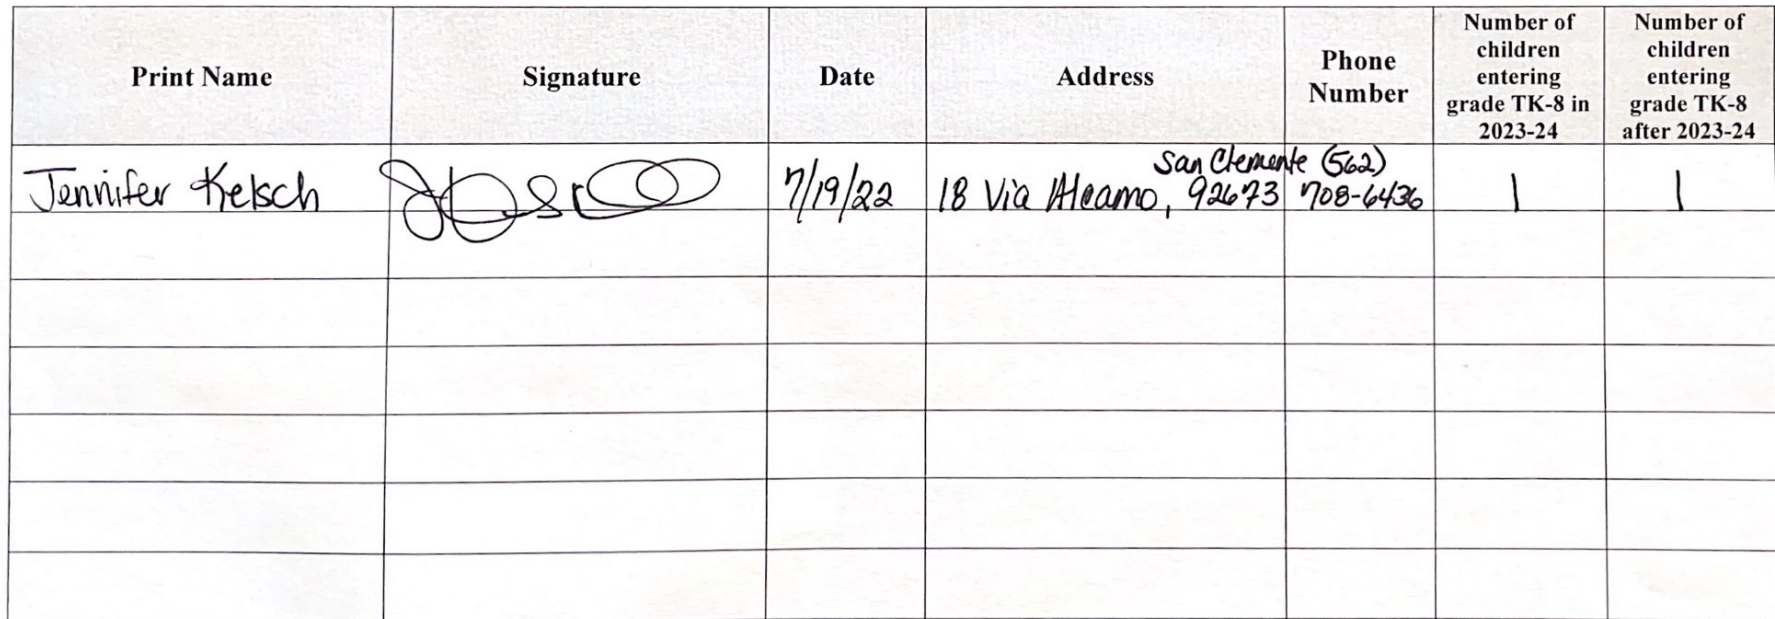 Print Name
Signature
Date
Address
Phone
Number
Number of
children
entering
grade TK-8 in
2023-24
Number of
children
entering
grade TK-8
after 2023-24
Jennifer Kelsch
7/19/22
San Clemente
18 Via Alcamo, 92673
(562)
708-6436
1
1